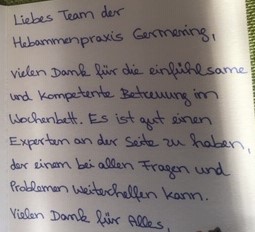 Liebes Team der
Hebammenpraxis Germering,
vielen Dank für die einfühlsame
und kompetente Betreuung im
Wochenbett. Es ist gut einen
Experten an der Seite zu haben,
der einem bei allen Fragen und
Problemen weiterhelfen kann.
Vielen Dank für Alles,